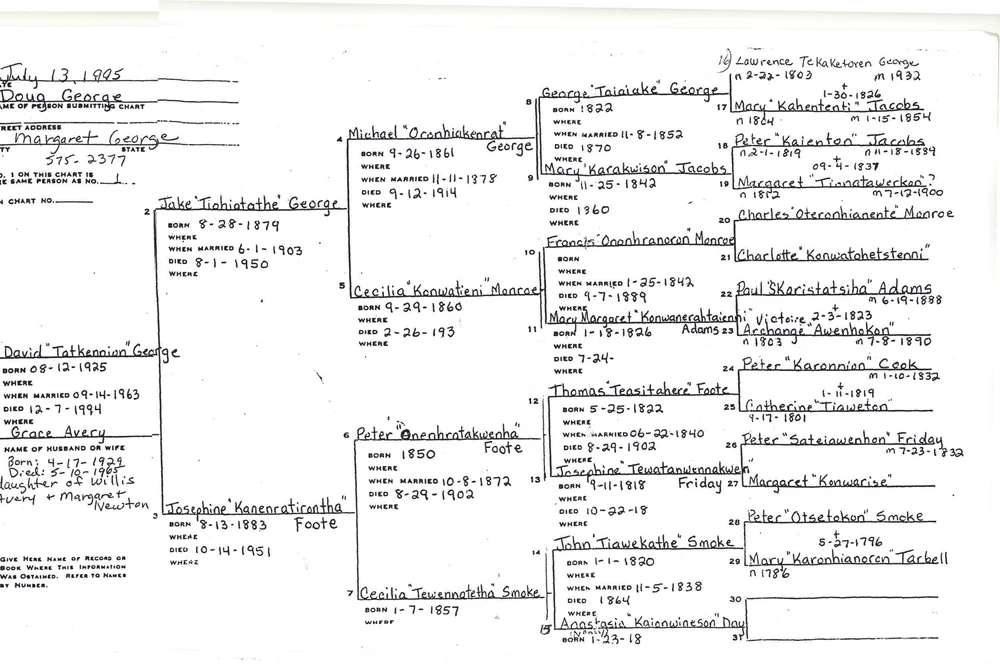 July 13, 1995
ATE
Doug George
AME OF PERSON SUBMITTING CHART
REET ADDRESS
Margaret George
TY STATE
575-2377
O. 1 ON THIS CHART IS
E SAME PERSON AS NO. 1.
N CHART NO.
David "Tatkennion" George
BORN 08-12-1925
WHERE
WHEN MARRIED 09-14-1963
DIED 12-7-1994
WHERE
Grace Avery
NAME OF HUSBAND OR WIFE
Born: 4-17-1929
Died: 5-10-1965
daughter of Willis
Avery + Margaret
Newton
GIVE HERE NAME OF RECORD OR
BOOK WHERE THIS INFORMATION
WAS OBTAINED. REFER TO NAMES
BY NUMBER.
2 Jake "Tiohiatathe" George
BORN 8-28-1879
WHERE
WHEN MARRIED 6-1-1903
DIED 8-1-1950
WHERE
3 Josephine "Kanenratirontha"
Foote
BORN 8-13-1883
WHERE
DIED 10-14-1951
WHERE
4 Michael "Oronhiakenrat"
George
BORN 9-26-1861
WHERE
WHEN MARRIED 11-11-1878
DIED 9-12-1914
WHERE
5 Cecilia "Konwatieni" Monroe
BORN 9-29-1860
WHERE
DIED 2-26-193
WHERE
6 Peter "Onenhratakwenha"
Foote
BORN 1850
WHERE
WHEN MARRIED 10-8-1872
DIED 8-29-1902
WHERE
7 Cecilia "Tewennotetha" Smoke
BORN 1-7-1857
WHERE
8 George "Taiaiake" George
BORN 1822
WHERE
WHEN MARRIED 11-8-1852
DIED 1870
WHERE
9 Mary "Karakwison" Jacobs
BORN 11-25-1842
WHERE
DIED 1360
WHERE
10 Francis "Ononhranoron" Monroe
BORN
WHERE
WHEN MARRIED 1-25-1842
DIED 9-7-1889
WHERE
11 Mary Margaret "Konwanerahtaienni"
Adams
BORN 1-18-1826
WHERE
DIED 7-24-
WHERE
12 Thomas "Teasitahere" Foote
BORN 5-25-1822
WHERE
WHEN MARRIED 06-22-1840
DIED 8-29-1902
WHERE
13 Josephine "Tewatanwennakwen"
Friday
BORN 9-11-1818
WHERE
DIED 10-22-18
WHERE
14 John "Tiawekathe" Smoke
BORN 1-1-1820
WHERE
WHEN MARRIED 11-5-1838
DIED 1864
WHERE
15 Anastasia "Kaionwineson" Day
BORN 1-23-18
16) Lawrence Tekaketoren George
n 2-22-1803 m 1932
+
1-30-1826
17 Mary "Kahententi" Jacobs
n 1804 m 1-15-1854
18 Peter "Kaienton" Jacobs
n 2-1-1819 m 11-18-1889
+
09-4-1837
19 Margaret "Tinnatawerkon"?
n 1812 m 7-12-1900
20 Charles "Oteronhianente" Monroe
21 Charlotte "Konwatohetstenni"
22 Paul "SKaristatsiha" Adams
m 6-19-1888
+
Victoire 2-3-1823
23 Archange "Awenhokon"
n 1803 m 7-8-1890
24 Peter "Karonnion" Cook
m 1-10-1832
+
1-11-1819
25 Catherine "Tiaweton"
9-17-1801
26 Peter "Sateiawenhon" Friday
m 7-23-1832
27 Margaret "Konwarise"
28 Peter "Otsetokon" Smoke
+
5-27-1796
29 Mary "Karonhianoron" Tarbell
n 1786
30
31